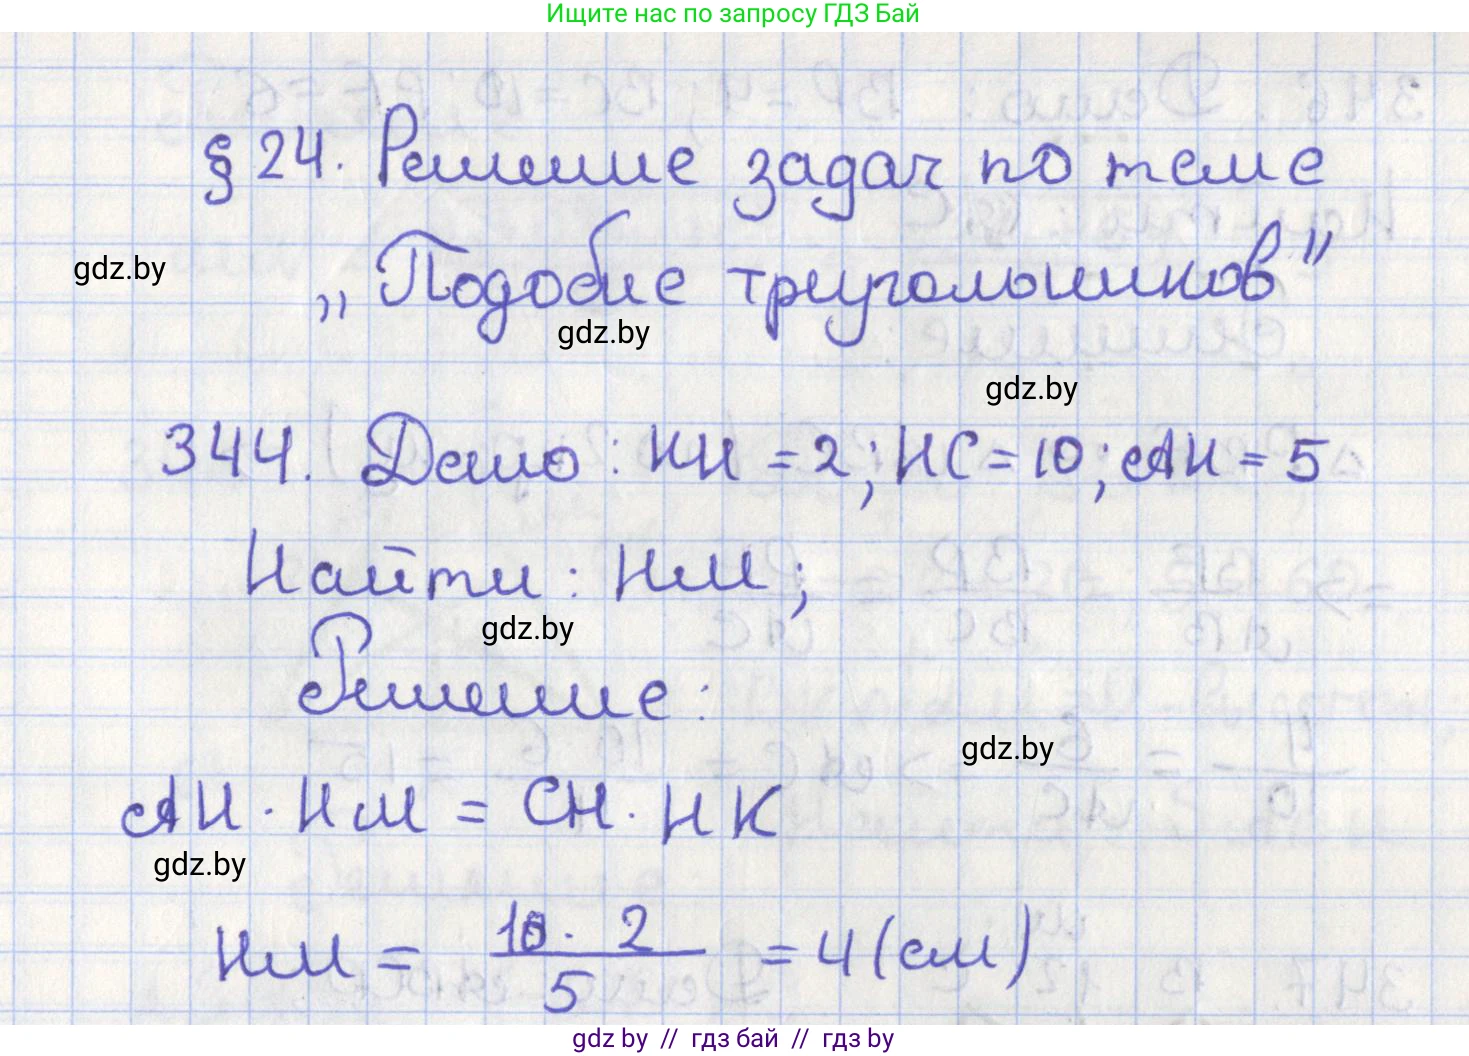 Ищите нас по запросу ГДЗ Бай
§ 24. Решение задач по теме
gdz.by
„Подобие треугольников"
gdz.by
gdz.by
344. Дано: КН = 2; НС = 10; АН = 5
Найти: НМ;
gdz.by
Решение:
gdz.by
АН · НМ = СН · НК
gdz.by
НМ = 10 · 2 / 5 = 4 (см)
gdz.by // гдз бай // гдз by